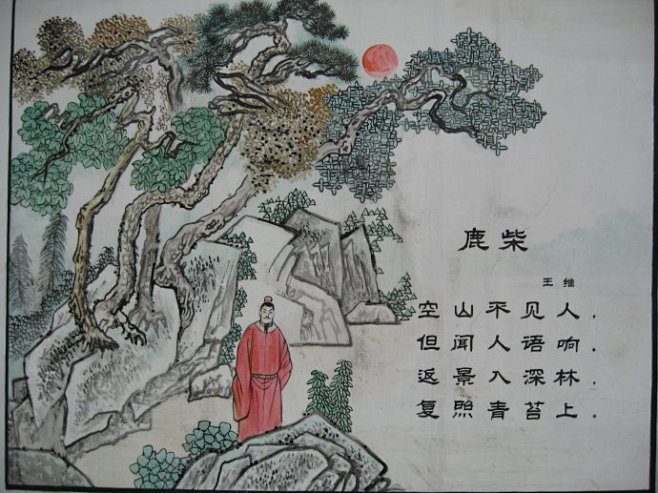 鹿柴
王维
空山不见人，
但闻人语响．
返景入深林，
复照青苔上。